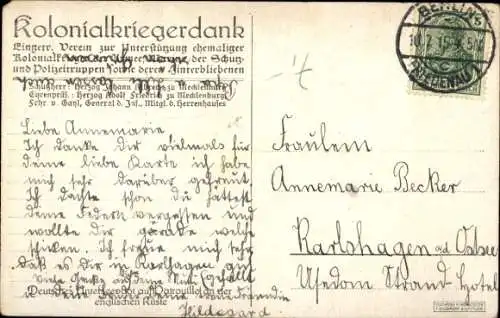 Kolonialkriegerdank
Eingetr. Verein zur Unterstützung ehemaliger
Kolonialkrieger der Armee, Marine, der Schutz-
und Polizeitruppen sowie deren Hinterbliebenen
Schutzherr: Herzog Johann Albrecht zu Mecklenburg
Ehrenpräs.: Herzog Adolf Friedrich zu Mecklenburg
Frhr v. Gayl, General d. Inf., Mitgl. d. Herrenhauses
BERLIN
10.7.15
FRIEDENAU 1
Liebe Annemarie
Ich danke dir vielmals für
deine liebe Karte ich habe
mich sehr darüber gefreut.
Ich dachte schon du hättest
deine Federn vergessen und
wollte dir gerade welche
schicken. Ich freue mich sehr
daß es dir in Karlhagen gut
gefällt
Hildegard
Deutsches Unterseeboot auf Patrouille an der
englischen Küste
Fräulein
Annemarie Becker
Karlshagen a/d Ostsee
Usedom Strand-Hotel